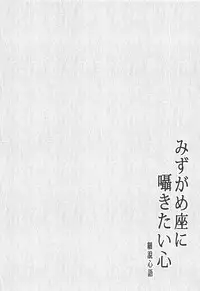 みずがめ座に
囁きたい心